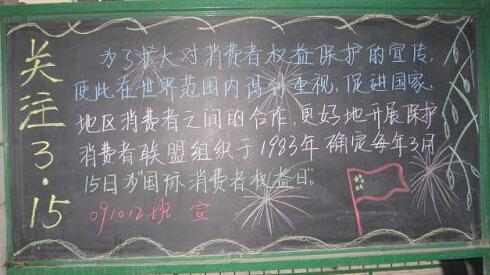 关注3·15
为了扩大对消费者权益保护的宣传,
使此在世界范围内得到重视,促进国家、
地区消费者之间的合作,更好地开展保护
消费者联盟组织于1983年确定每年3月
15日为“国际消费者权益日”。
091012班 宣